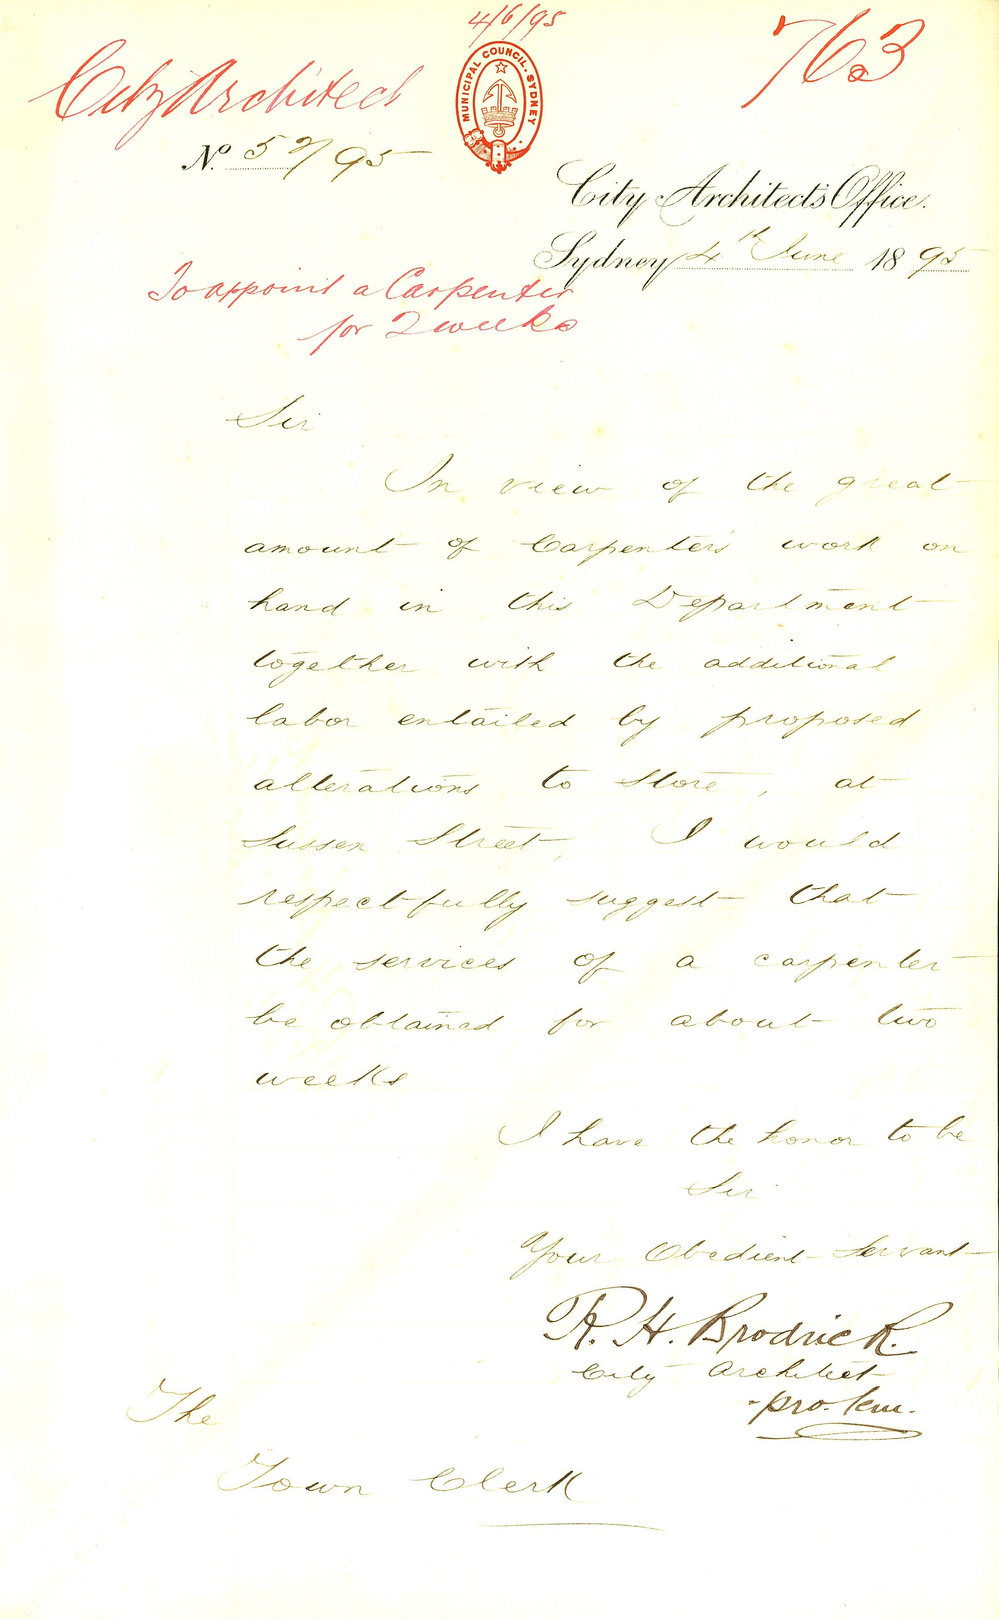 4/6/95
763
City Architect
MUNICIPAL COUNCIL. SYDNEY
No. 52/95
City Architect's Office.
Sydney 4th June 1895
To appoint a Carpenter
for 2 weeks
Sir
In view of the great
amount of Carpenter's work on
hand in this Department
together with the additional
labor entailed by proposed
alterations to Store, at
Sussex Street, I would
respectfully suggest that
the services of a carpenter
be obtained for about two
weeks
I have the honor to be
Sir
Your Obedient Servant
R. H. Brodrick.
City Architect
pro. tem.
The
Town Clerk